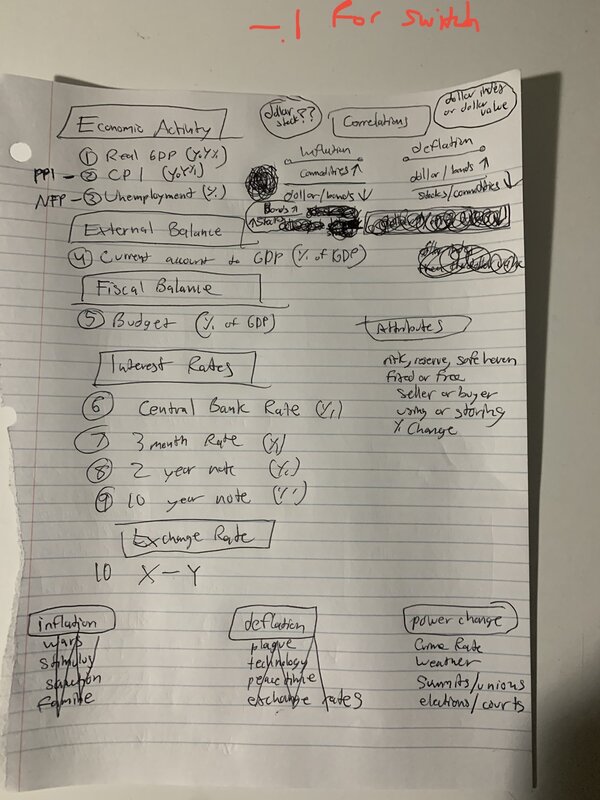 -.1 For switch
dollar stock??
dollar index or dollar value
Economic Activity
Correlations
① Real GDP (YoY%)
PPI - ② CPI (YoY%)
NFP - ③ Unemployment (%)
inflation
commodities ↑
dollar/bonds ↓
Bonds ↑
↑ Stocks
deflation
dollar/bonds ↑
Stocks/commodities ↓
External Balance
④ Current account to GDP (% of GDP)
Fiscal Balance
⑤ Budget (% of GDP)
Attributes
risk, reserve, safe haven
fixed or free
seller or buyer
using or storing
% Change
Interest Rates
⑥ Central Bank Rate (%)
⑦ 3 month Rate (%)
⑧ 2 year note (%)
⑨ 10 year note (%)
Exchange Rate
10 X - Y
inflation
wars
stimulus
sanction
famine
deflation
plague
technology
peacetime
exchange rates
power change
Crime Rate
weather
Summits/unions
elections/courts